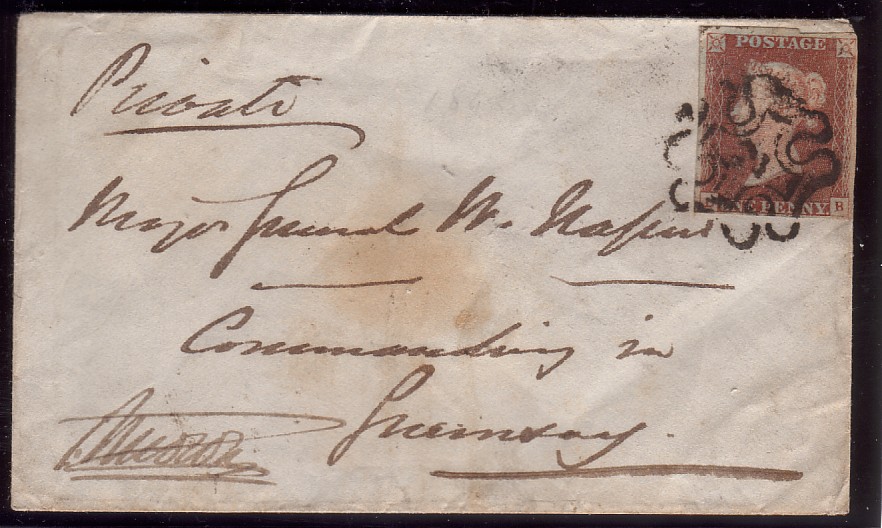 Private
POSTAGE
Major General Wm Napier
ONE PENNY B
Commanding in
Guernsey.